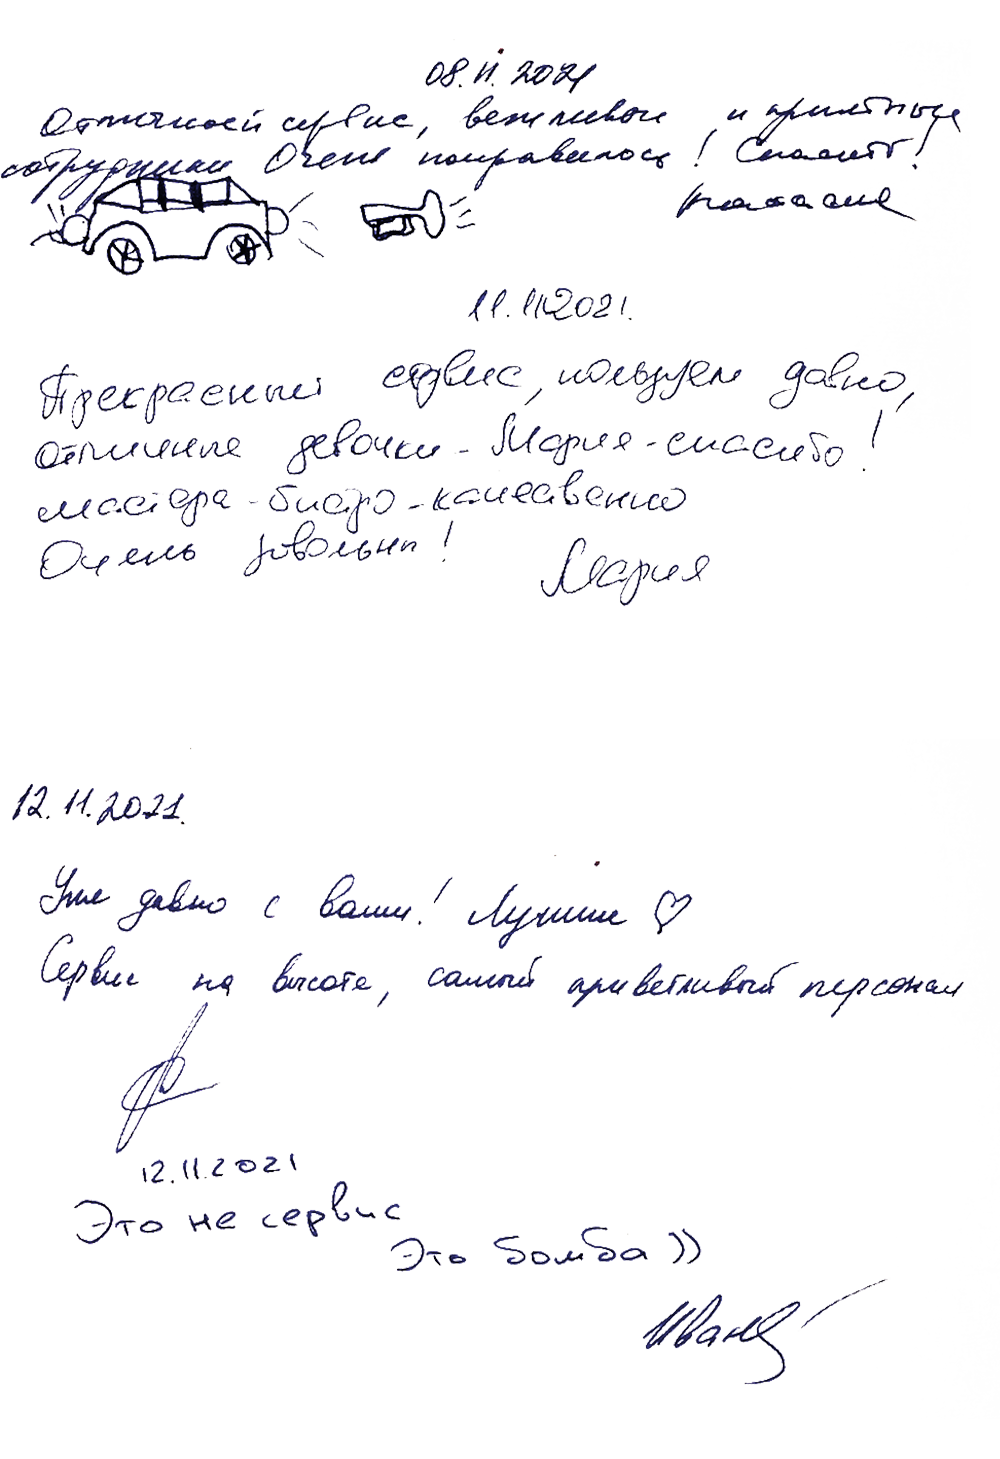 08.11.2021
Отличный сервис, вежливые и приятные
сотрудники Очень понравилось! Спасибо!
11.11.2021.
Прекрасный сервис, пользуем давно,
отличные девочки - Мария - спасибо!
мастера - быстро - качесвенно
Очень довольны!
Мария
12.11.2021.
Уже давно с вами! Лучшие ♡
Сервис на высоте, самый приветливый персонал
12.11.2021
Это не сервис
Это бомба))
Иванов